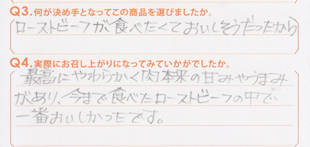 Q3.何が決め手となってこの商品を選びましたか。
ローストビーフが食べたくておいしそうだったから
Q4.実際にお召し上がりになってみていかがでしたか。
最高にやわらかく肉本来の甘みやうまみ
があり、今まで食べたローストビーフの中で、
一番おいしかったです。